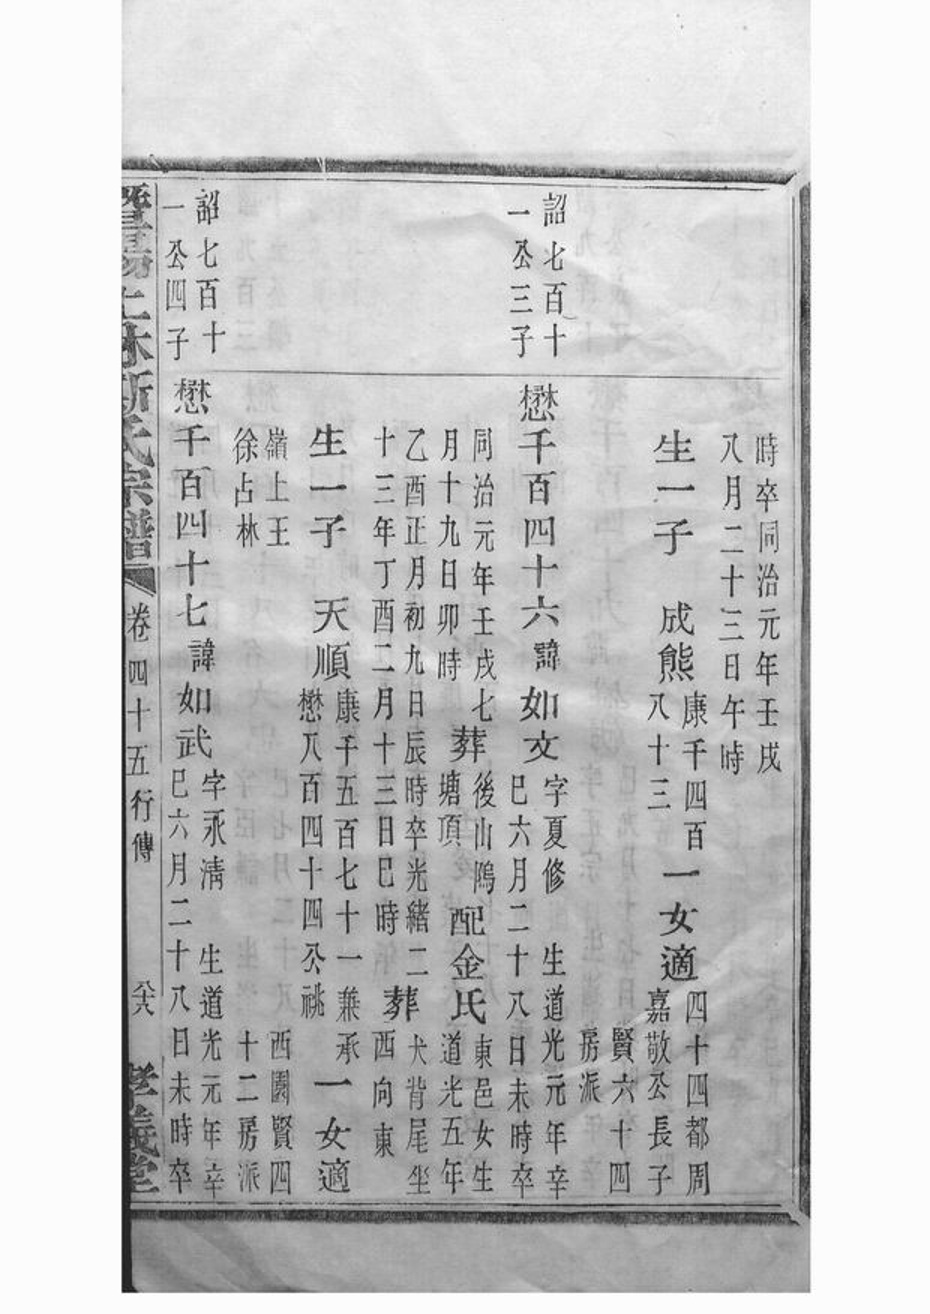 時卒同治元年壬戌
八月二十三日午時
生一子
成熊
康千四百
八十三
一女適
四十四都周
嘉敬公長子
賢六十四
房派
詔七百十
一公三子
懋千百四十六諱如文
字夏修
生道光元年辛
巳六月二十八日未時卒
同治元年壬戌七
月十九日卯時
葬
後山隖
塘頂
配金氏
東邑女生
道光五年
乙酉正月初九日辰時卒光緒二
十三年丁酉二月十三日巳時
葬
犬背尾坐
西向東
生一子
天順
康千五百七十一兼承
懋八百四十四公祧
一女適
西園賢四
十二房派
嶺上王
徐占林
詔七百十
一公四子
懋千百四十七諱如武
字永淸
生道光元年辛
巳六月二十八日未時卒
暨陽上林斯氏宗譜
卷四十五
行傳
孝義堂